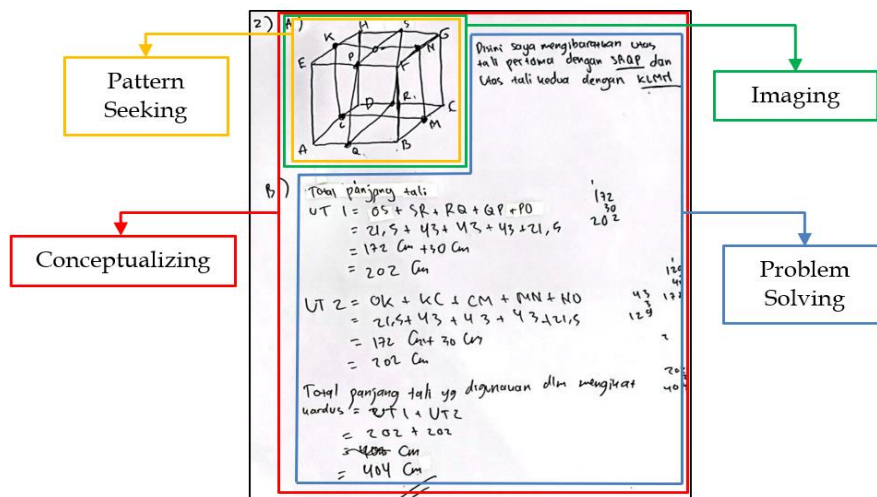 Pattern
Seeking
Conceptualizing
Imaging
Problem
Solving
2) A)
H S G
K N
E P F
D R C
L M
A Q B
Disini saya mengibaratkan utas
tali pertama dengan SRQP dan
utas tali kedua dengan KLMN
B) Total panjang tali
UT 1 = OS + SR + RQ + QP + PO
= 21,5 + 43 + 43 + 43 + 21,5
= 172 Cm + 30 Cm
= 202 Cm
172
30
202
UT 2 = OK + KC + CM + MN + NO
= 21,5 + 43 + 43 + 43 + 21,5
= 172 Cm + 30 Cm
= 202 Cm
43
3
129
Total panjang tali yg digunakan dlm mengikat
kardus = UT 1 + UT 2
= 202 + 202
Cm
= 404 Cm